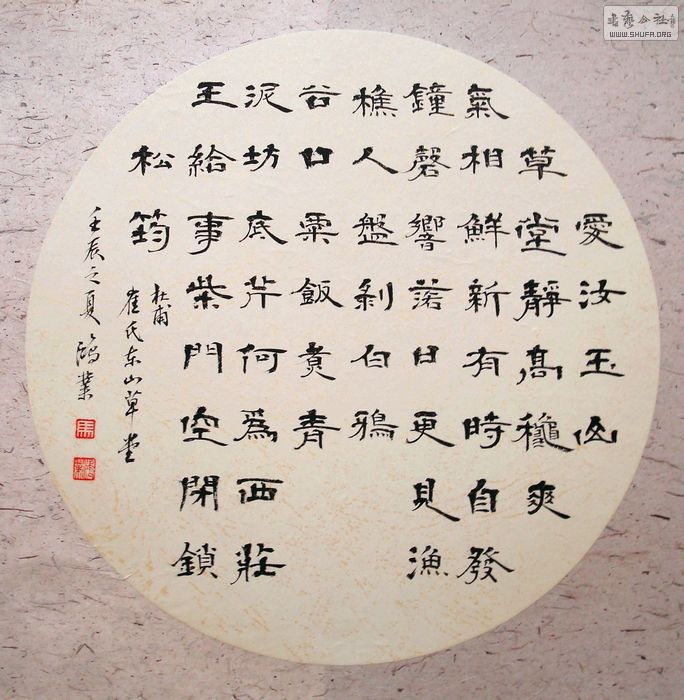 愛汝玉山
草堂靜高龝爽
氣相鮮新有時自發
鐘磬響落日更見漁
樵人盤剝白鴉
谷口粟飯煮青
泥坊底芹何爲西莊
王給事柴門空閉鎖
松筠
杜甫
崔氏东山草堂
壬辰之夏鴻業
馬
WWW.SHUFA.ORG